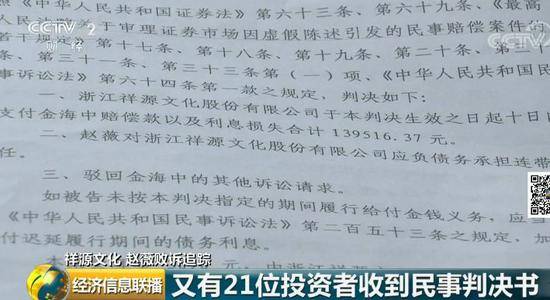 CCTV 2
财经
CCTV
照《中华人民共和国证券法》第六十三条、第六十九条、《最高
关于审理证券市场因虚假陈述引发的民事赔偿案件的
若干规定》第十七条、第十八条、第十九条、第二十条、第
条、第三十一条、第三十三条第（一）项、《中华人民共和国民
事诉讼法》第六十四条第一款之规定，判决如下：
一、浙江祥源文化股份有限公司于本判决生效之日起十日
支付金海中赔偿款以及利息损失合计139516.37元。
二、赵薇对浙江祥源文化股份有限公司应负债务承担连带
任。
三、驳回金海中的其他诉讼请求。
如被告未按本判决指定的期间履行给付金钱义务，应当
《中华人民共和国民事诉讼法》第二百五十三条之规定，加
付迟延履行期间的债务利息。
祥源文化 赵薇败诉追踪
经济信息联播
又有21位投资者收到民事判决书